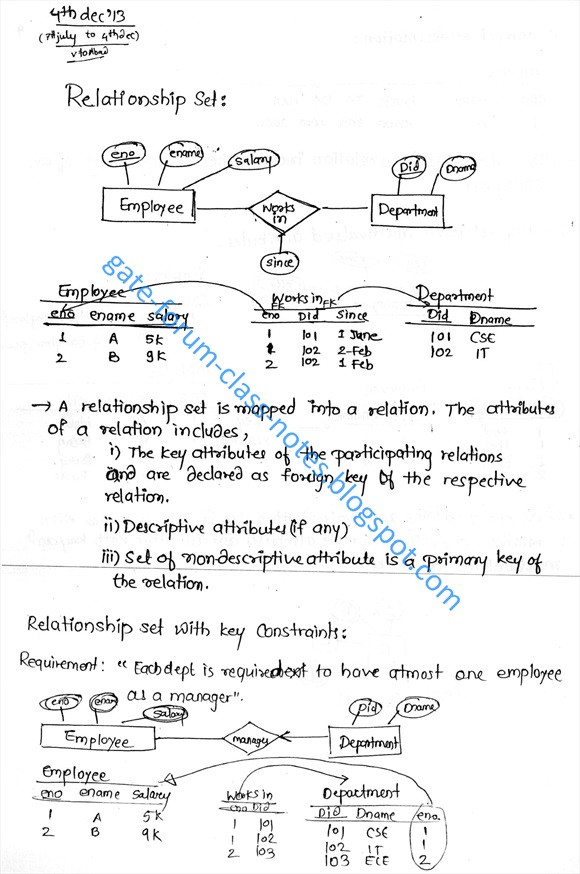 4th dec'13
(7th july to 4th dec)
Relationship Set:
eno ename salary Did Dname
Employee Works in Department
since
Employee Works in Department
FK FK
eno ename salary eno Did Since Did Dname
1 A 5K 1 101 1 June 101 CSE
2 B 9K 1 102 2-Feb 102 IT
2 102 1 Feb
→ A relationship set is mapped into a relation. The attributes
of a relation includes,
i) The key attributes of the participating relations
and are declared as foreign key of the respective
relation.
ii) Descriptive attributes (if any)
iii) Set of non-descriptive attribute is a primary key of
the relation.
gate-forum-class-notes.blogspot.com
Relationship set with key Constraints:
Requirement: "Each dept is required to have atmost one employee
as a manager".
eno enam salary Did Dname
Employee manages Department
Employee Works in Department
eno ename Salary eno Did Did Dname eno
1 A 5K 1 101 101 CSE 1
2 B 9K 1 102 102 IT 1
2 103 103 ECE 2